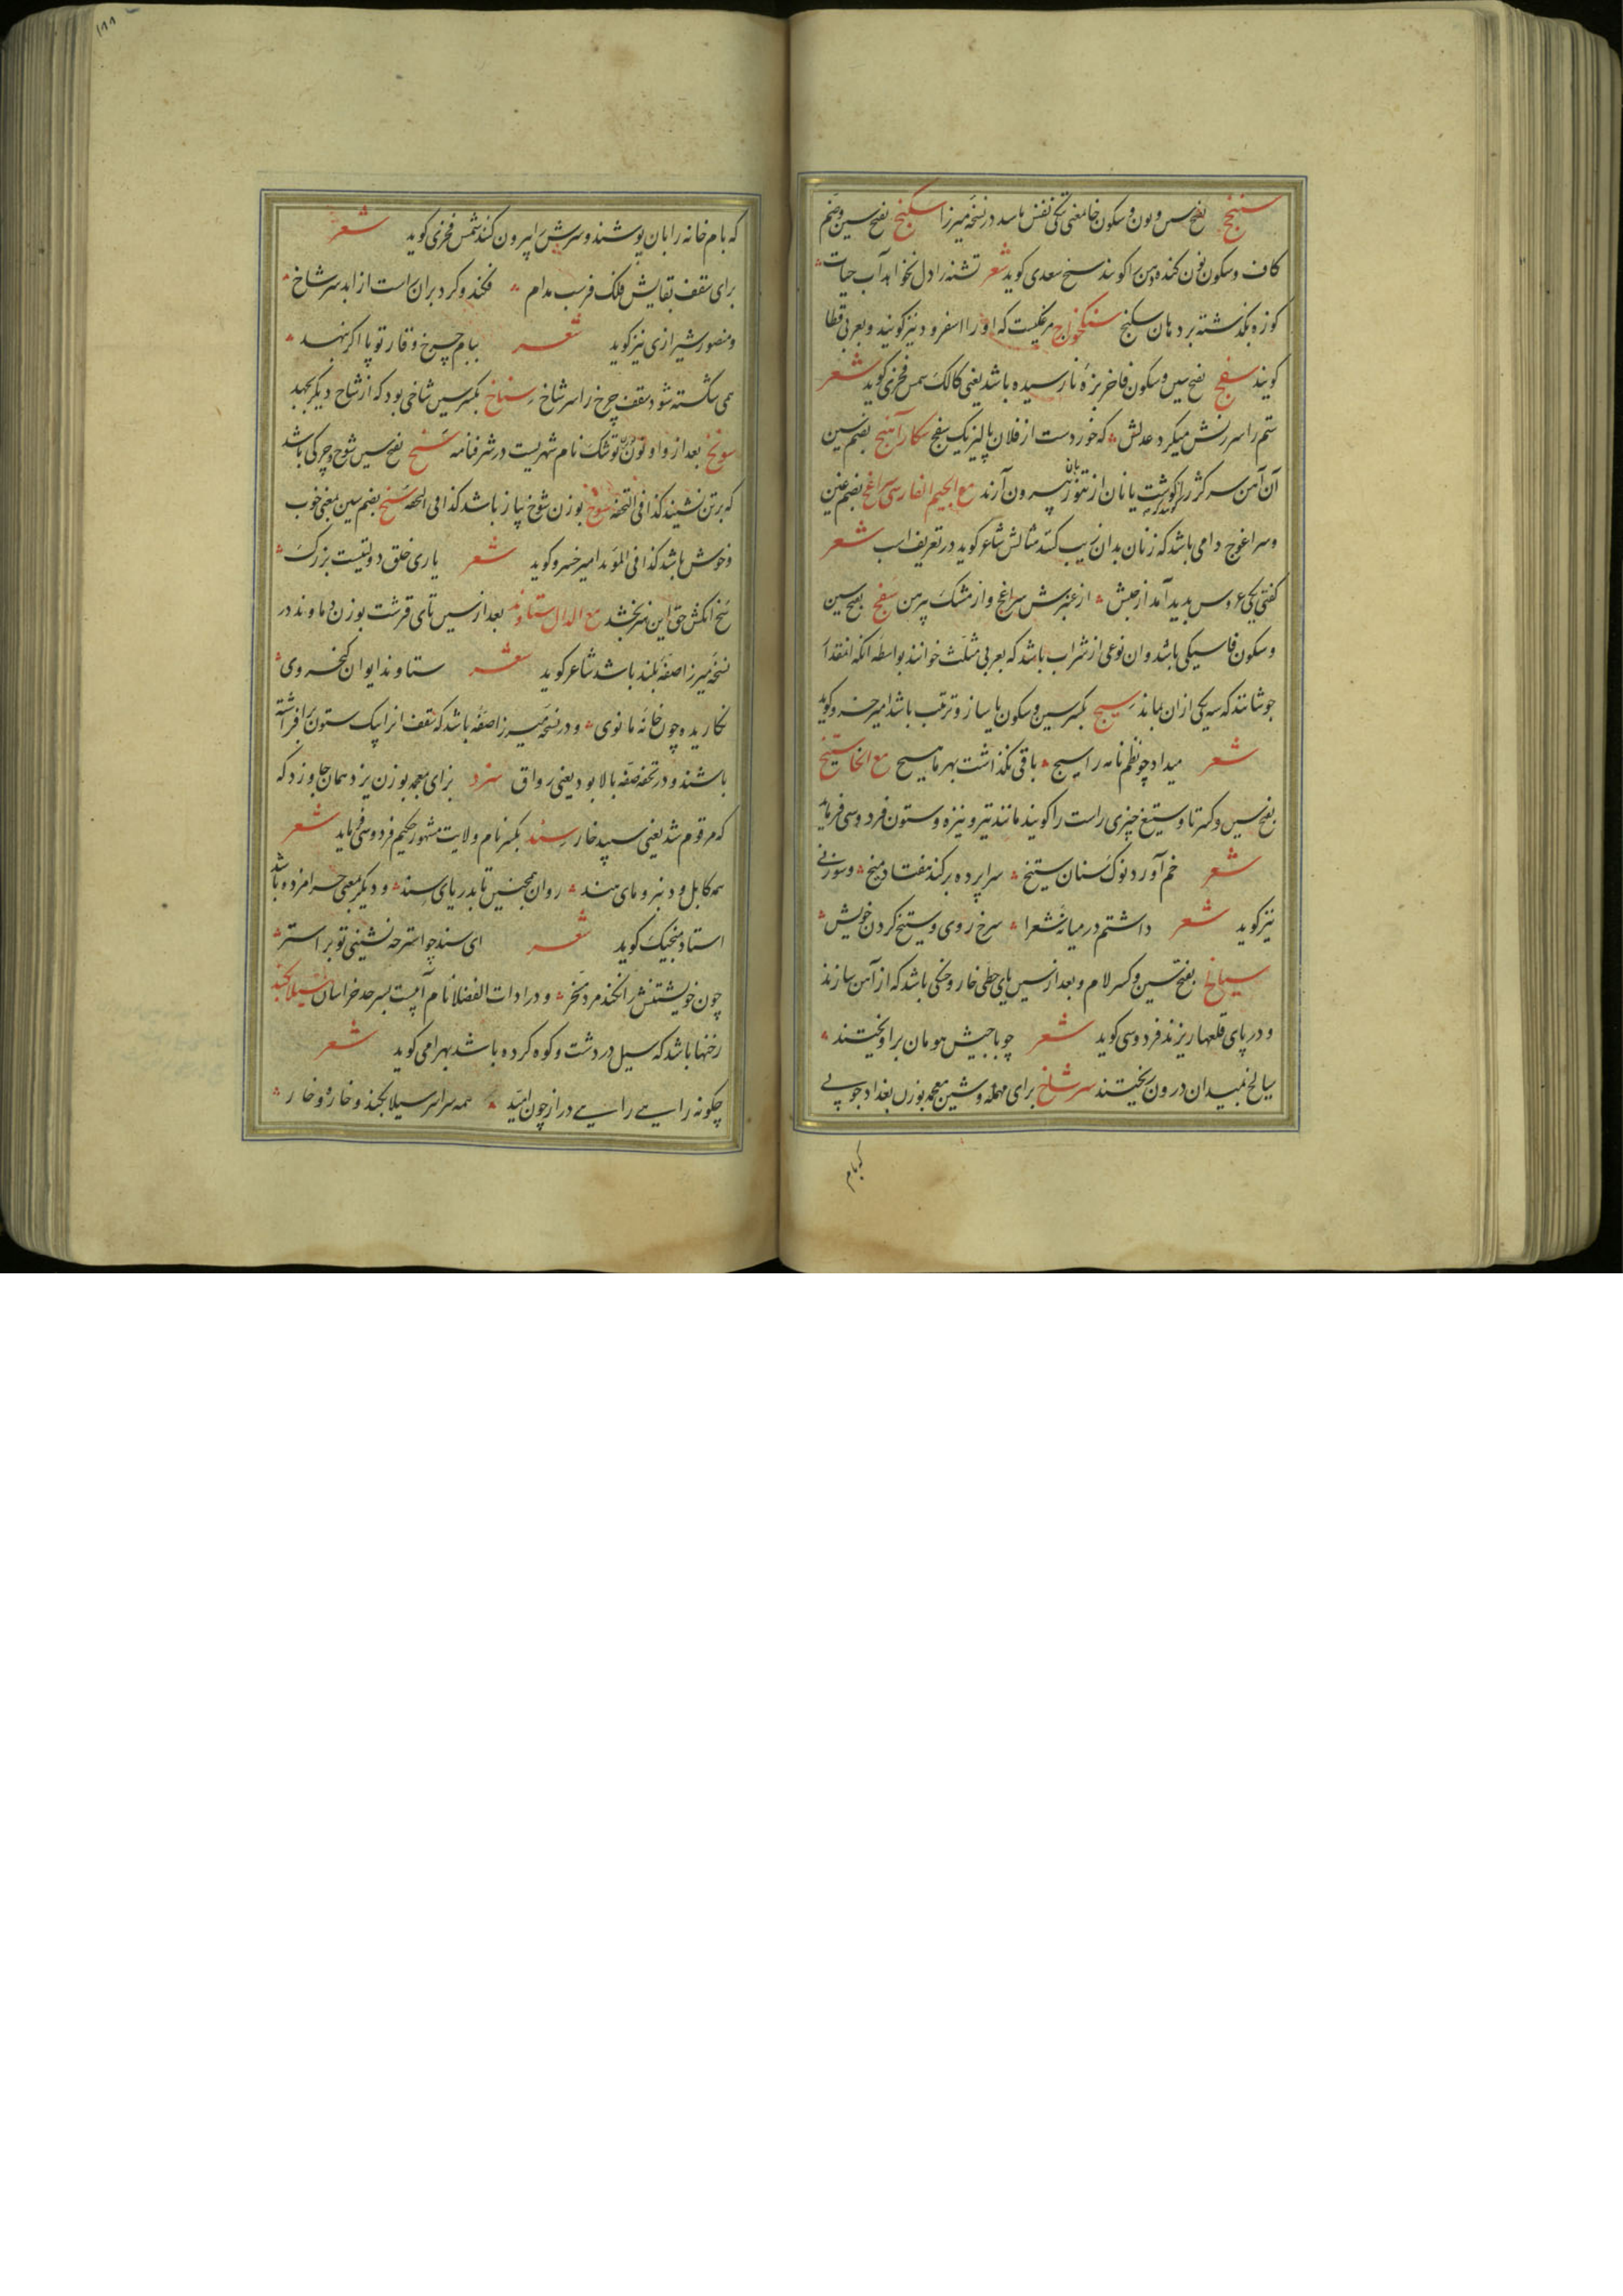 سنخج بفتح سین و نون و سکون خا معنی تنکی نفس باشد در نسخه میرزا سکنج بفتح سین و ضم
کاف و سکون نون کنده دهن را کویند شیخ سعدی کوید شعر تشنه را دل نخواهد آب حیات
کوزه بگذشته بر دهان سکنج سنکخواج مرغکیست که او را اسفرود نیز کویند و بعربی قطا
کویند سفج بفتح سین و سکون فا خربزهٔ نارسیده باشد یعنی کالک شمس فخری کوید شعر
ستم را سرزنش میکرد عدلش که خوردست از فلان پالیز یک سفج سکار آهنج بضم سین
آن آهن سرکژ را کویند که بان گوشت یا نان از تنور بیرون آرند مع الجیم الفارسی سراغج بضم غین
و سراغوج دامی باشد که زنان بدان زیب کنند مثالش شاعر کوید در تعریف اسب شعر
کفتی یکی عروس بدید آمد از حبش از عنبرش سراغج و از مشک پیرهن سفج بفتح سین
و سکون فا سیکی باشد و ان نوعی از شراب باشد که بعربی مثلث خوانند بواسطه آنکه انقدر
جوشانند که سه یکی ازان بماند سیج بکسر سین و سکون یا ساز و ترتیب باشد امیر خسرو کوید
شعر میداد چو نظم نامه را سیج باقی نکذاشت بهر ما هیچ مع الخا ستیخ
بفتح سین و کسر تا و ستیغ چیزی راست را کویند مانند تیر و نیزه و ستون فردوسی فرماید
شعر خم آورد نوک سنان ستیخ سراپرده برکند هفتاد میخ و سوزنی
نیز کوید شعر داشتم در میانه شعرا سرخ روی و ستیخ کردن خویش
سیالخ بفتح سین و کسر لام و بعد از سین یای حطی خار و خسکی باشد که از آهن سازند
و در پای قلعها ریزند فردوسی کوید شعر چو با جیش هومان براویختند
سیالخ بمیدان درون ریختند سرشاخ برای مهمله و شین معجمه بوزن بغداد چوبی
که بام
که بام خانه را بآن پوشند و سرش را بیرون کنند شمس فخری کوید شعر
برای سقف بقایش فلک فرسب مدام فکند و کرد بران راست از ابد سرشاخ
و منصور شیرازی نیز کوید شعر ببام چرخ وقار تو پا اکر بنهد
همی شکسته شود سقف چرخ را سرشاخ ستاخ بکسر سین شاخی بود که از شاخ دیگر بجهد
سونخ بعد از واو نون توشک نام شهریست در شرفنامه سنخ بفتح سین شوخ و چرکی باشد
که بر تن نشیند کذا فی التحفه سوخ بوزن شوخ پیاز باشد کذا فی التحفه سنخ بضم سین بمعنی خوب
و خوش باشد کذا فی المؤید امیر خسرو کوید شعر یاری خلق دولتیست بزرک
سخ انکش حق این هنر بخشد مع الدال ستاوند بعد از سین تای قرشت بوزن دماوند در
نسخه میرزا صفهٔ بلند باشد شاعر کوید شعر ستاوند ایوان کیخسروی
نکاریده چون خانه مانوی و در نسخه میرزا صفه باشد که سقف انرا بیک ستون برافراشته
باشند و در تحفه صفه بالا بود یعنی رواق سزد برای معجمه بوزن یزد همان جلوزد که
که مرقوم شد یعنی سپید خار سند بکسر نام ولایت مشهور حکیم فردوسی فرماید شعر
همه کابل و دنبر و مای هند روان همچنین تا بدریای سند و دیکر بمعنی حرامزده باشد
استاد منجیک کوید شعر ای سند چو استر چه نشینی تو بر استر
چون خویشتنش را نکند مرد مسخر و در ادات الفضلا نام آبیست بسرحد خراسان سیلابکند
رخنها باشد که سیل در دشت و کوه کرده باشد بهرامی کوید شعر
چکونه راهی راهی دراز چون امید همه سراسر سیلابکند و خاره و خار